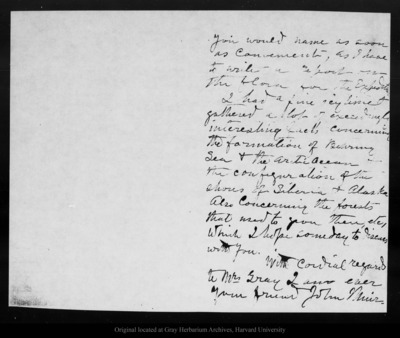 you would name as soon
as convenient, as I have
to write a report on
the flora for the Expedit
I had a fine icy time &
gathered a lot of exceedingly
interesting facts concerning
the formation of Behring
Sea & the Arctic Ocean
the configuration of the
shores of Siberia & Alaska
Also concerning the forests
that used to grow there etc
which I hope some day to discuss
with you.
With cordial regards
to Mrs Gray I am ever
Your friend John Muir.
Original located at Gray Herbarium Archives, Harvard University